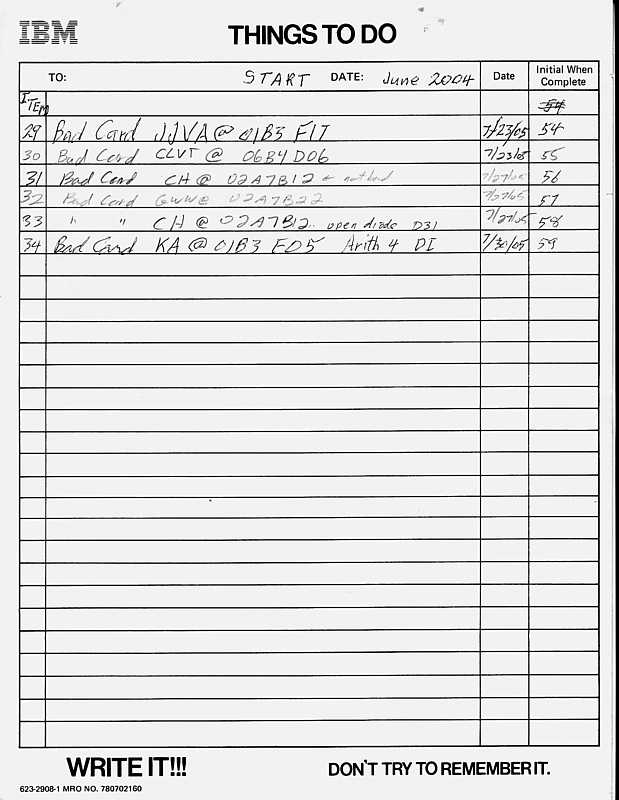 IBM THINGS TO DO
TO: START DATE: June 2004 Date Initial When Complete
ITEM 54
29 Bad Card JJVA @ 01B3 F17 7/23/05 54
30 Bad Card CLVT @ 06B4 D06 7/23/05 55
31 Bad Card CH @ 02A7B12 ← not bad 7/27/05 56
32 Bad Card GWW @ 02A7B22 7/27/05 57
33 " " CH @ 02A7B12.. open diode D31 7/27/05 58
34 Bad Card KA @ 01B3 E05 Arith 4 DI 7/30/05 59
WRITE IT!!! DON'T TRY TO REMEMBER IT.
623-2908-1 MRO NO. 780702160